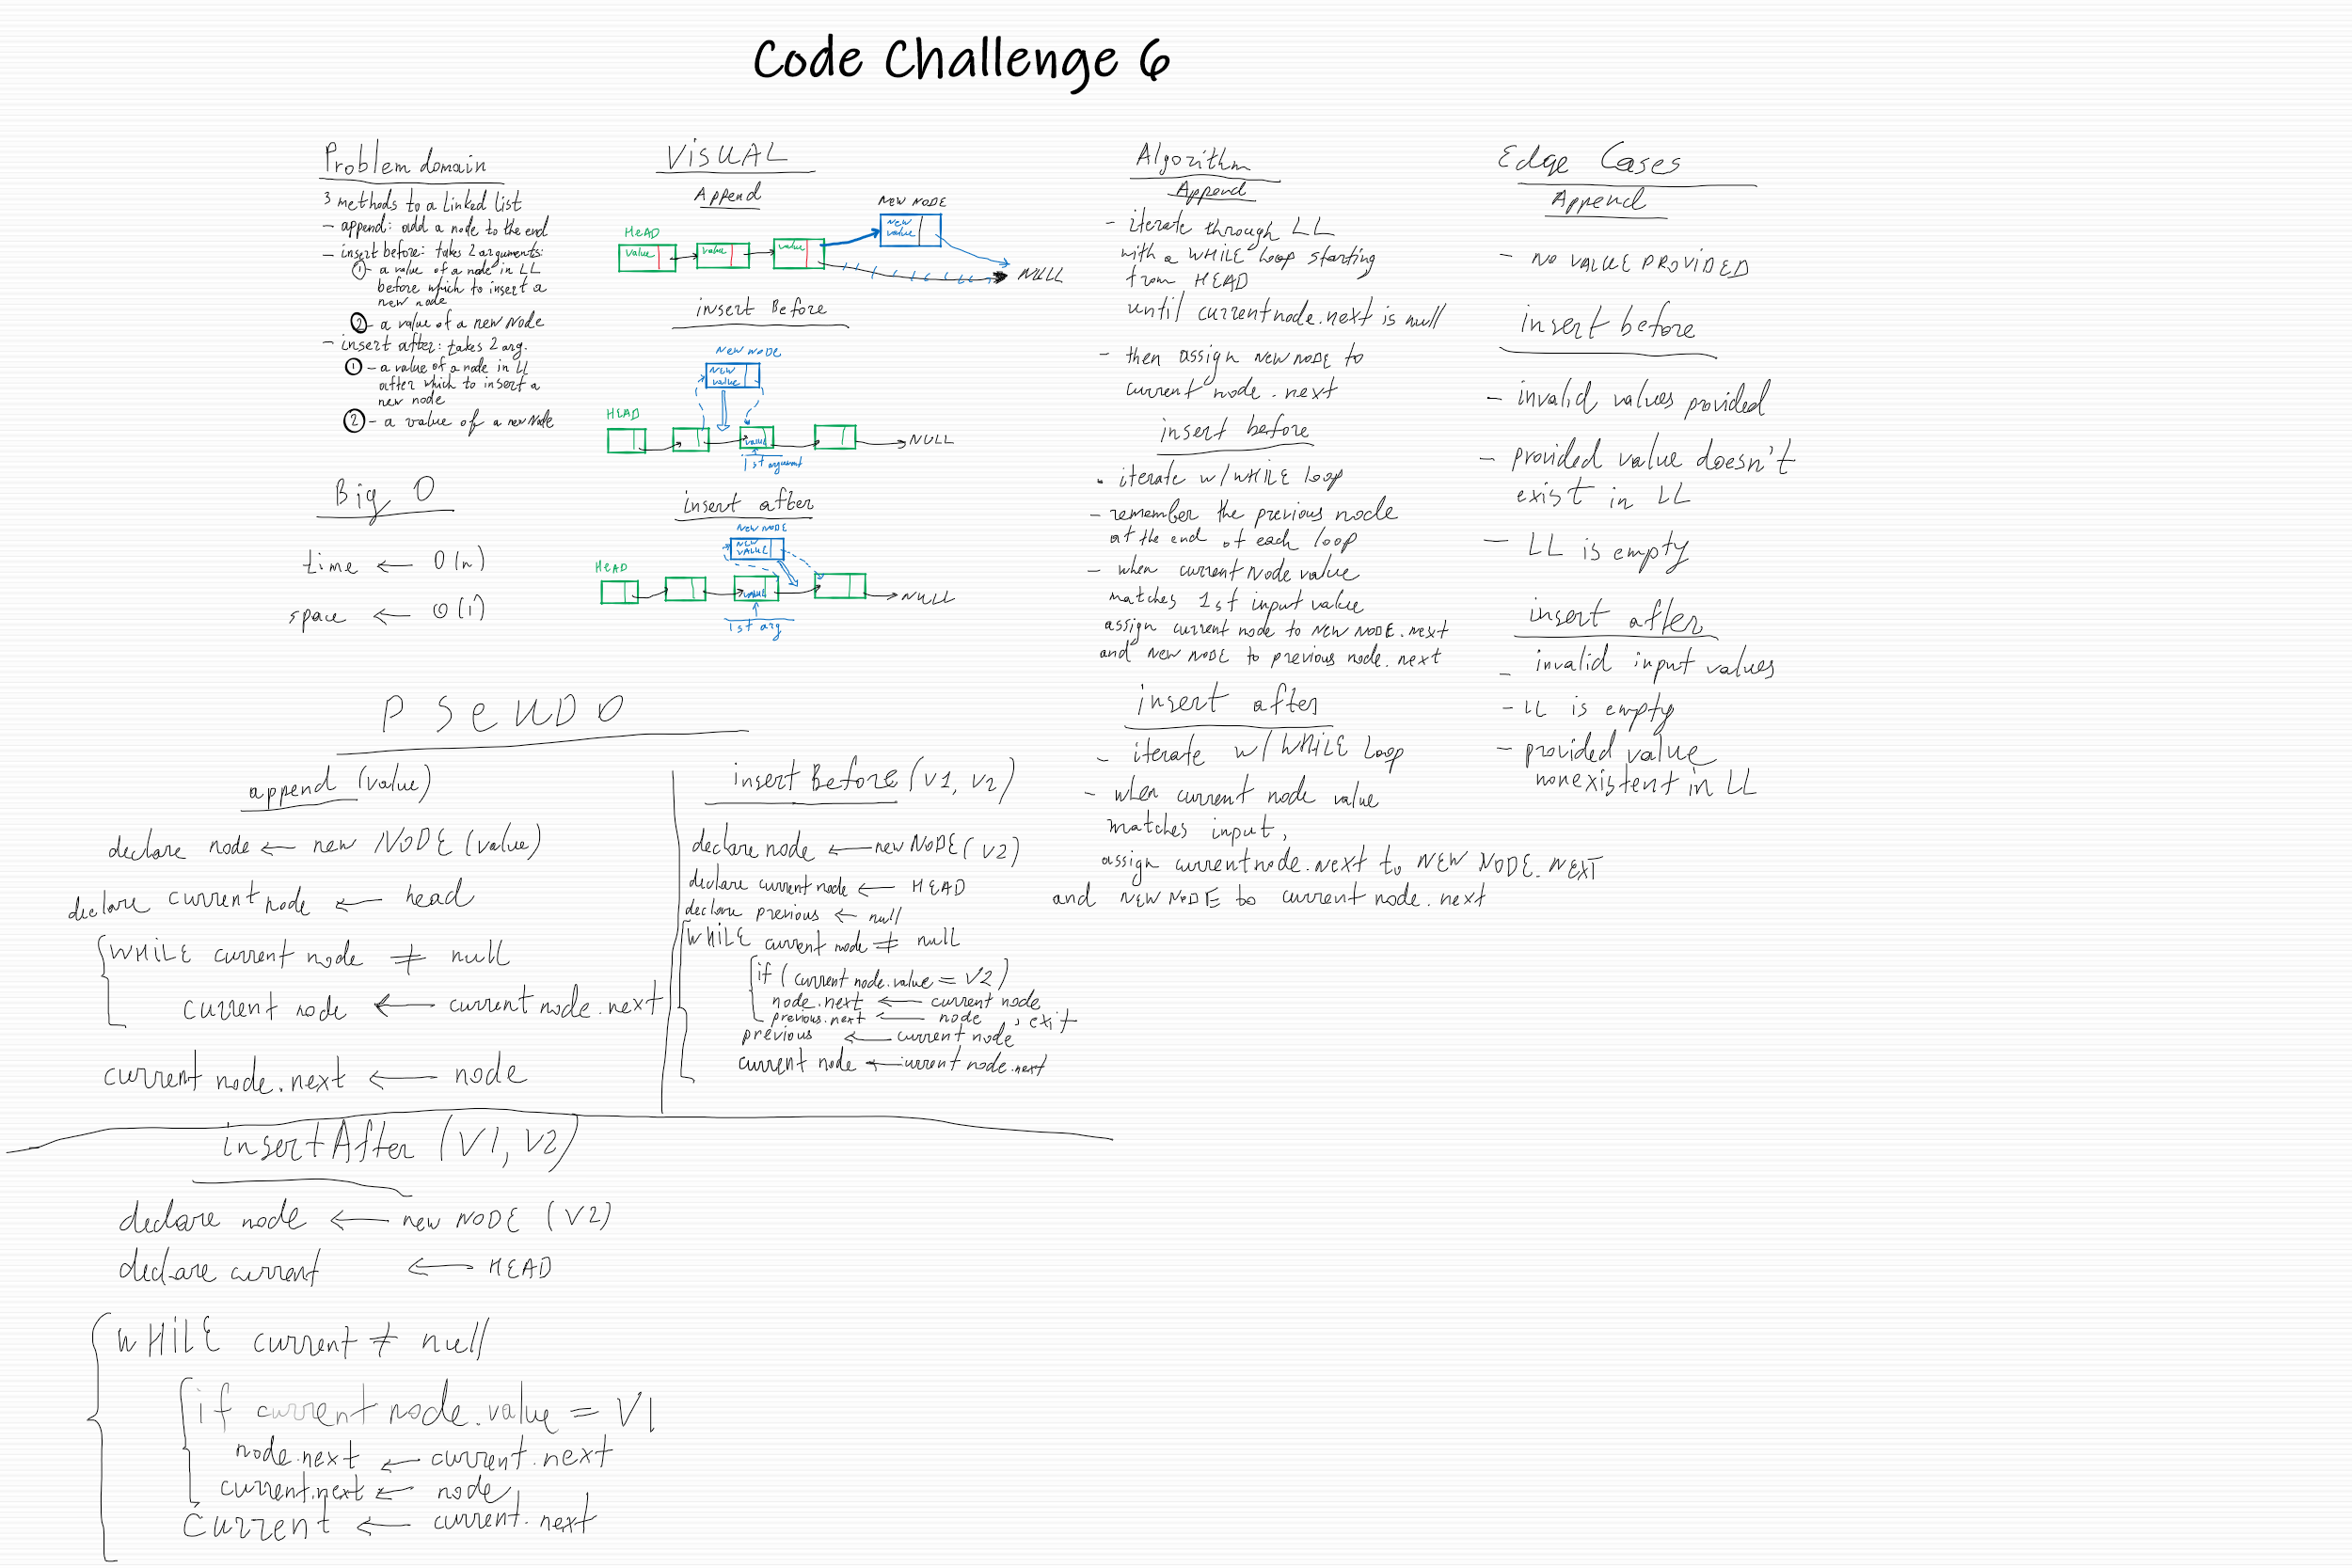 Code Challenge 6
Problem domain
3 methods to a linked list
- append: add a node to the end
- insert before: takes 2 arguments:
① - a value of a node in LL
before which to insert a
new node
② - a value of a new Node
- insert after: takes 2 arg.
① - a value of a node in LL
after which to insert a
new node
② - a value of a new Node
Big O
time ← O(n)
space ← O(1)
VISUAL
Append
NEW NODE
HEAD
value
value
value
New
value
NULL
insert Before
NEW NODE
NEW
value
HEAD
value
NULL
1st argument
insert after
NEW NODE
NEW
VALUE
HEAD
value
NULL
1st arg
Algorithm
Append
- iterate through LL
with a WHILE loop starting
from HEAD
until current node.next is null
- then assign NEW NODE to
current node.next
insert before
- iterate w/ WHILE loop
- remember the previous node
at the end of each loop
- when current Node value
matches 1st input value
assign current node to NEW NODE.next
and NEW NODE to previous node.next
insert after
- iterate w/ WHILE loop
- when current node value
matches input,
assign current node.next to NEW NODE.NEXT
and NEW NODE to current node.next
Edge Cases
Append
- NO VALUE PROVIDED
insert before
- invalid values provided
- provided value doesn't
exist in LL
- LL is empty
insert after
- invalid input values
- LL is empty
- provided value
nonexistent in LL
PSEUDO
append (value)
declare node ← new NODE (value)
declare current node ← head
WHILE current node ≠ null
current node ← current node.next
current node.next ← node
insert Before (V1, V2)
declare node ← new NODE (V2)
declare current node ← HEAD
declare previous ← null
WHILE current node ≠ null
if (current node.value = V2)
node.next ← current node
previous.next ← node, exit
previous ← current node
current node ← current node.next
insertAfter (V1, V2)
declare node ← new NODE (V2)
declare current ← HEAD
WHILE current ≠ null
if current node.value = V1
node.next ← current.next
current.next ← node,
current ← current.next